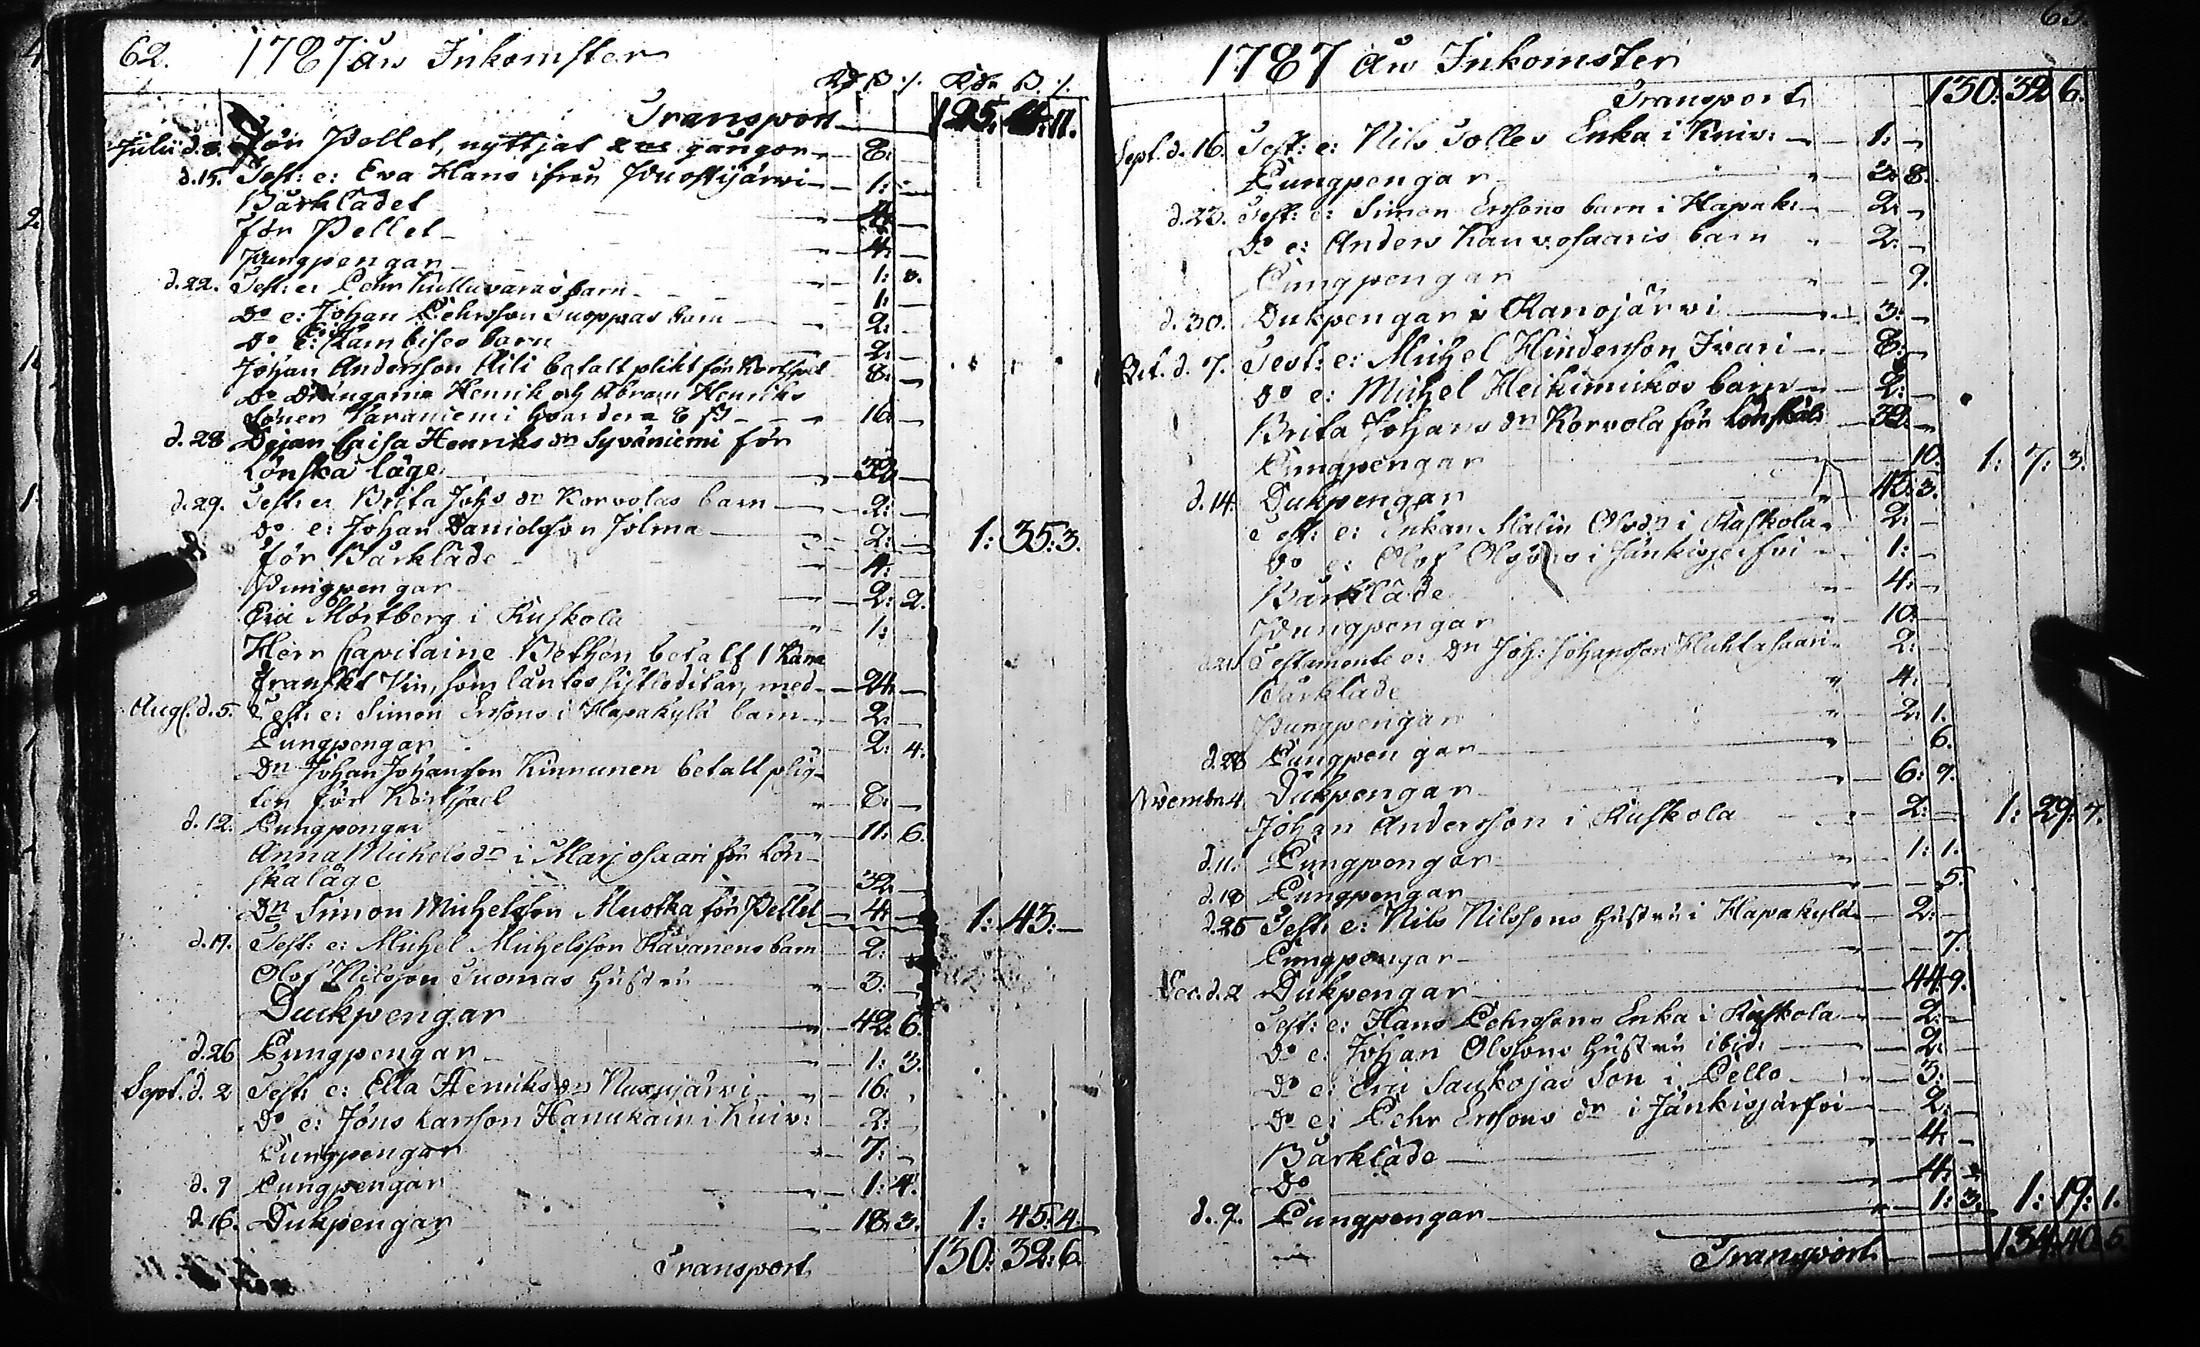 62. 1787 års Inkomster
Rd ß :/. Rdr ß. :/.
Transport 125: 4: 11.
Julii d. 8. För Pellet, nyttjat 2ne gångor 8: —
d. 15. Test: e: Eva Hans ifrån 1: —
Bårklädet 4: —
för Pellet 4: —
Pungpengar 1: 3.
d. 22. Test: e: Pehr Kulluvaras barn 1: —
Do e: Johan Pehrsson Tuoppas barn 2: —
Do e: barn 2: —
Johan Andersson Aili betalt plikt för Kortspel 8: —
Do Drängarne Henrik och Abram Henriks
söner Varaniemi hvardera 8 ß 16: —
d. 28 Pigan Caisa Henriks dr Syväniemi för
Lönska läge 32: —
d. 29. Test: e: Brita Johs dr Korvolas barn 2: —
Do e: Johan Danielsson Jolma 2: — 1: 35: 3.
för Bårkläde 4: —
Pungpengar 2: 2.
Eric Mörtberg i Ruskola 1:
Herr Capitaine Bethen betalt 1 Kana
Franskt Vin, som låntes sistledit år, med 24: —
Aug. d. 5. Test: e: Simon Erssons i Hapakylä barn 2: —
Pungpengar 2: 4.
Dn Johan Johansson Kinnunen betalt plig-
ten för Kortspel 8: —
d. 12. Pungpengar 11: 6.
Anna Michels dr i Marjosaari för Lön-
skaläge 32: —
Dn Simon Michelsson Mustka för Pellet 4: — 1: 43: —
d. 19. Test: e: Michel Michelsson Kavanens barn 2: —
Olof Nilsson Tuomas hustru 3: —
Duckpengar 42: 6.
d. 26 Pungpengar 1: 3.
Sept. d. 2 Test: e: Ella Henriks dr 16:
Do e: Jöns Larsson Hanukain i Kuiv: 2: —
Pungpengar 7: —
d. 9 Pungpengar 1: 4.
d. 16. Dukpengar 18: 3. 1: 45: 4.
Transport 130: 32: 6.
63.
1787 års Inkomster
Transport 130: 32: 6.
Sept. d. 16. Test: e: Nils Tolles Enka i Kuiv: 1: —
Pungpengar 3: 8.
d. 23. Test: e: Simon Erssons barn i Hapak: 2: —
Do e: Anders Kauvosaaris barn 2: —
Pungpengar 9.
d. 30. Dukpengar i Kanojärvi 3: —
Oct. d. 7. Test: e: Michel Hindersson Ivari 8: —
Do e: Michel Heikimikos barn 2: —
Brita Johans dr Korvola för Lönskaläge 32: —
Pungpengar 10. 1: 7: 3.
d. 14. Dukpengar 45: 3.
Test: e: Enkan Malin Olsdr i Ruskola 2: —
Do e: Olof Olssons i Jänkisjerfvi 1: —
Bårkläde 4: —
Pungpengar 10: —
d. 21. Testamente e: Dn Joh: Johansson Huhtasaari 2: —
Bårkläde 4: —
Pungpengar 2: 1.
d. 28 Pungpengar 6.
Novembr. 4. Dukpengar 6: 9.
Johan Andersson i Ruskola 2: — 1: 29: 7.
d. 11. Pungpengar 1: 1.
d. 18 Pungpengar 5.
d. 25 Test: e: Nils Nilssons hustru i Hapakylä 2: —
Pungpengar 7.
Dec. d. 2 Dukpengar 44: 9.
Test: e: Hans Pehrssons Enka i Ruskola 2: —
Do e: Johan Olssons hustru ibid: 2: —
Do e: Eric Saukojas Son i Pello 3: —
Do e: Pehr Erssons dr i Jänkisjärfvi 2: —
Bårkläde 4: —
Do 4: —
d. 9. Pungpengar 1: 3. 1: 19: 1.
Transport 134: 40: 5.